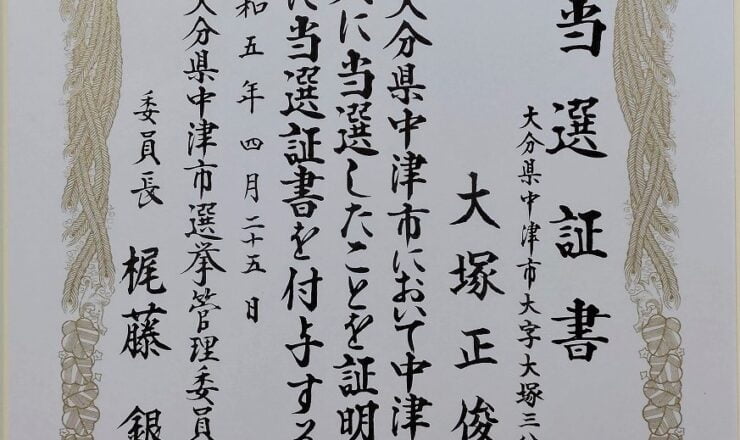 当選証書
大分県中津市大字大塚三
大塚正俊
大分県中津市において中津
に当選したことを証明
に当選証書を付与する
和五年四月二十五日
大分県中津市選挙管理委員
委員長 梶藤 銀